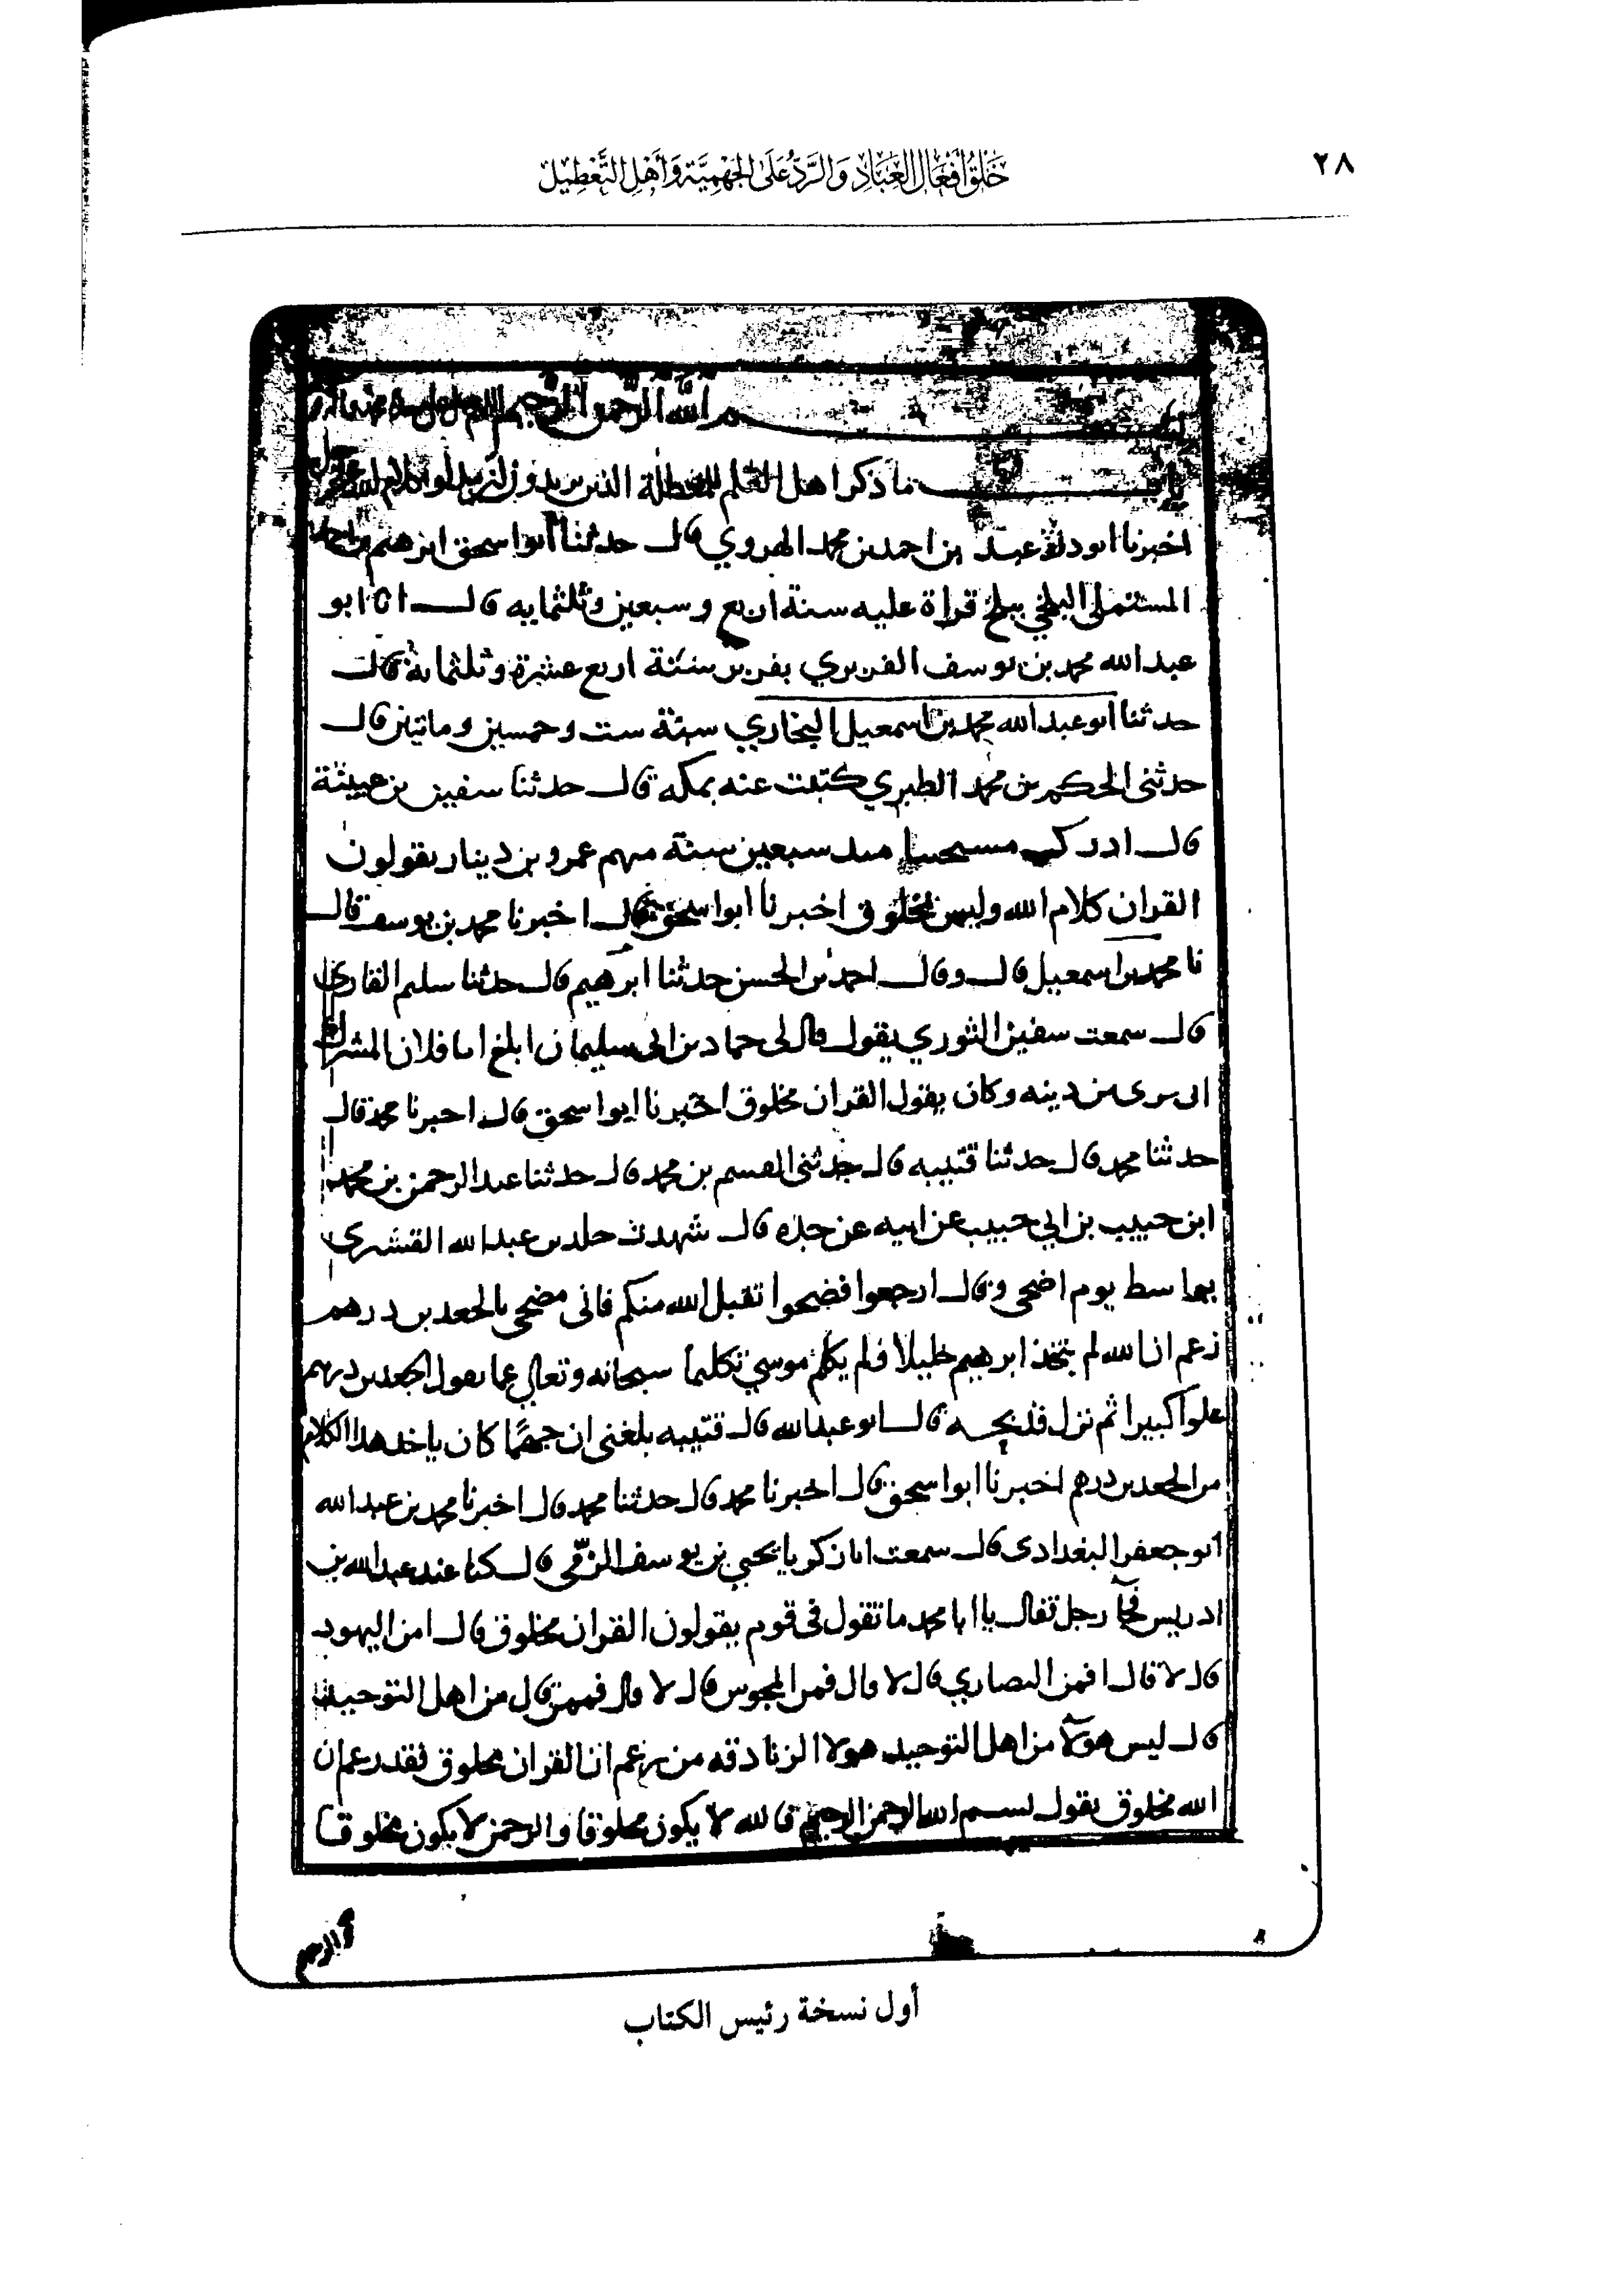 ٢٨
خَلْقُ أَفْعَالِ الْعِبَادِ وَالرَّدُّ عَلَى الْجَهْمِيَّةِ وَأَهْلِ التَّعْطِيلِ
بسم الله الرحمن الرحيم اللهم صل على سيدنا محمد
باب ما ذكر اهل العلم للمعطلة الذين يريدون ان يبدلوا كلام الله
اخبرنا ابو ذر عبد بن احمد بن محمد الهروي قال حدثنا ابوا سحق ابرهيم بن احمد
المستملى البلخي ببلخ قراة عليه سنة اربع وسبعين وثلثمايه قال انا ابو
عبد الله محمد بن يوسف الفربري بفربر سنة اربع عشرة وثلثماية قال
حدثنا ابو عبد الله محمد بن اسمعيل البخاري سنة ست وخمسين وماتين قال
حدثنى الحكم بن محمد الطبري كتبت عنه بمكه قال حدثنا سفين بن عيينة
قال ادركت مشيختنا منذ سبعين سنة منهم عمرو بن دينار يقولون
القران كلام الله وليس بمخلوق اخبرنا ابوا سحق قال اخبرنا محمد بن يوسف قال
نا محمد بن اسمعيل قال وقال احمد بن الحسن حدثنا ابرهيم قال حدثنا سليم القارى
قال سمعت سفين الثوري يقول قال لى حماد بن ابى سليمان ابلغ ابا فلان المشرك
انى برى من دينه وكان يقول القران مخلوق اخبرنا ابوا سحق قال اخبرنا محمد قال
حدثنا محمد قال حدثنا قتيبه قال حدثنى القسم بن محمد قال حدثنا عبد الرحمن بن محمد
ابن حبيب بن ابي حبيب عن ابيه عن جده قال شهدت خلد بن عبد الله القشرى
بواسط يوم اضحى وقال ارجعوا فضحوا تقبل الله منكم فانى مضحى بالجعد بن درهم
زعم ان الله لم يتخذ ابرهيم خليلا فلم يكلم موسي تكليما سبحانه وتعالى عما يقول الجعد بن درهم
علوا كبيرا ثم نزل فذبحه قال ابو عبد الله قال قتيبه بلغنى ان جهما كان ياخذ هذا الكلام
من الجعد بن درهم اخبرنا ابوا سحق قال اخبرنا محمد قال حدثنا محمد قال اخبرنا محمد بن عبد الله
ابو جعفر البغدادى قال سمعت ابا زكريا يحيي بن يوسف الزمى قال كنا عند عبد الله بن
ادريس فجا رجل فقال يا ابا محمد ما تقول فى قوم يقولون القران مخلوق قال امن اليهود
قال لا قال افمن النصاري قال لا قال فمن المجوس قال لا قال فممن قال من اهل التوحيد
قال ليس هولا من اهل التوحيد هولا الزنادقه من زعم ان القران مخلوق فقد زعم ان
الله مخلوق يقول بسم الله الرحمن الرحيم فالله لا يكون مخلوقا والرحمن لا يكون مخلوقا
والرحيم
أول نسخة رئيس الكتاب